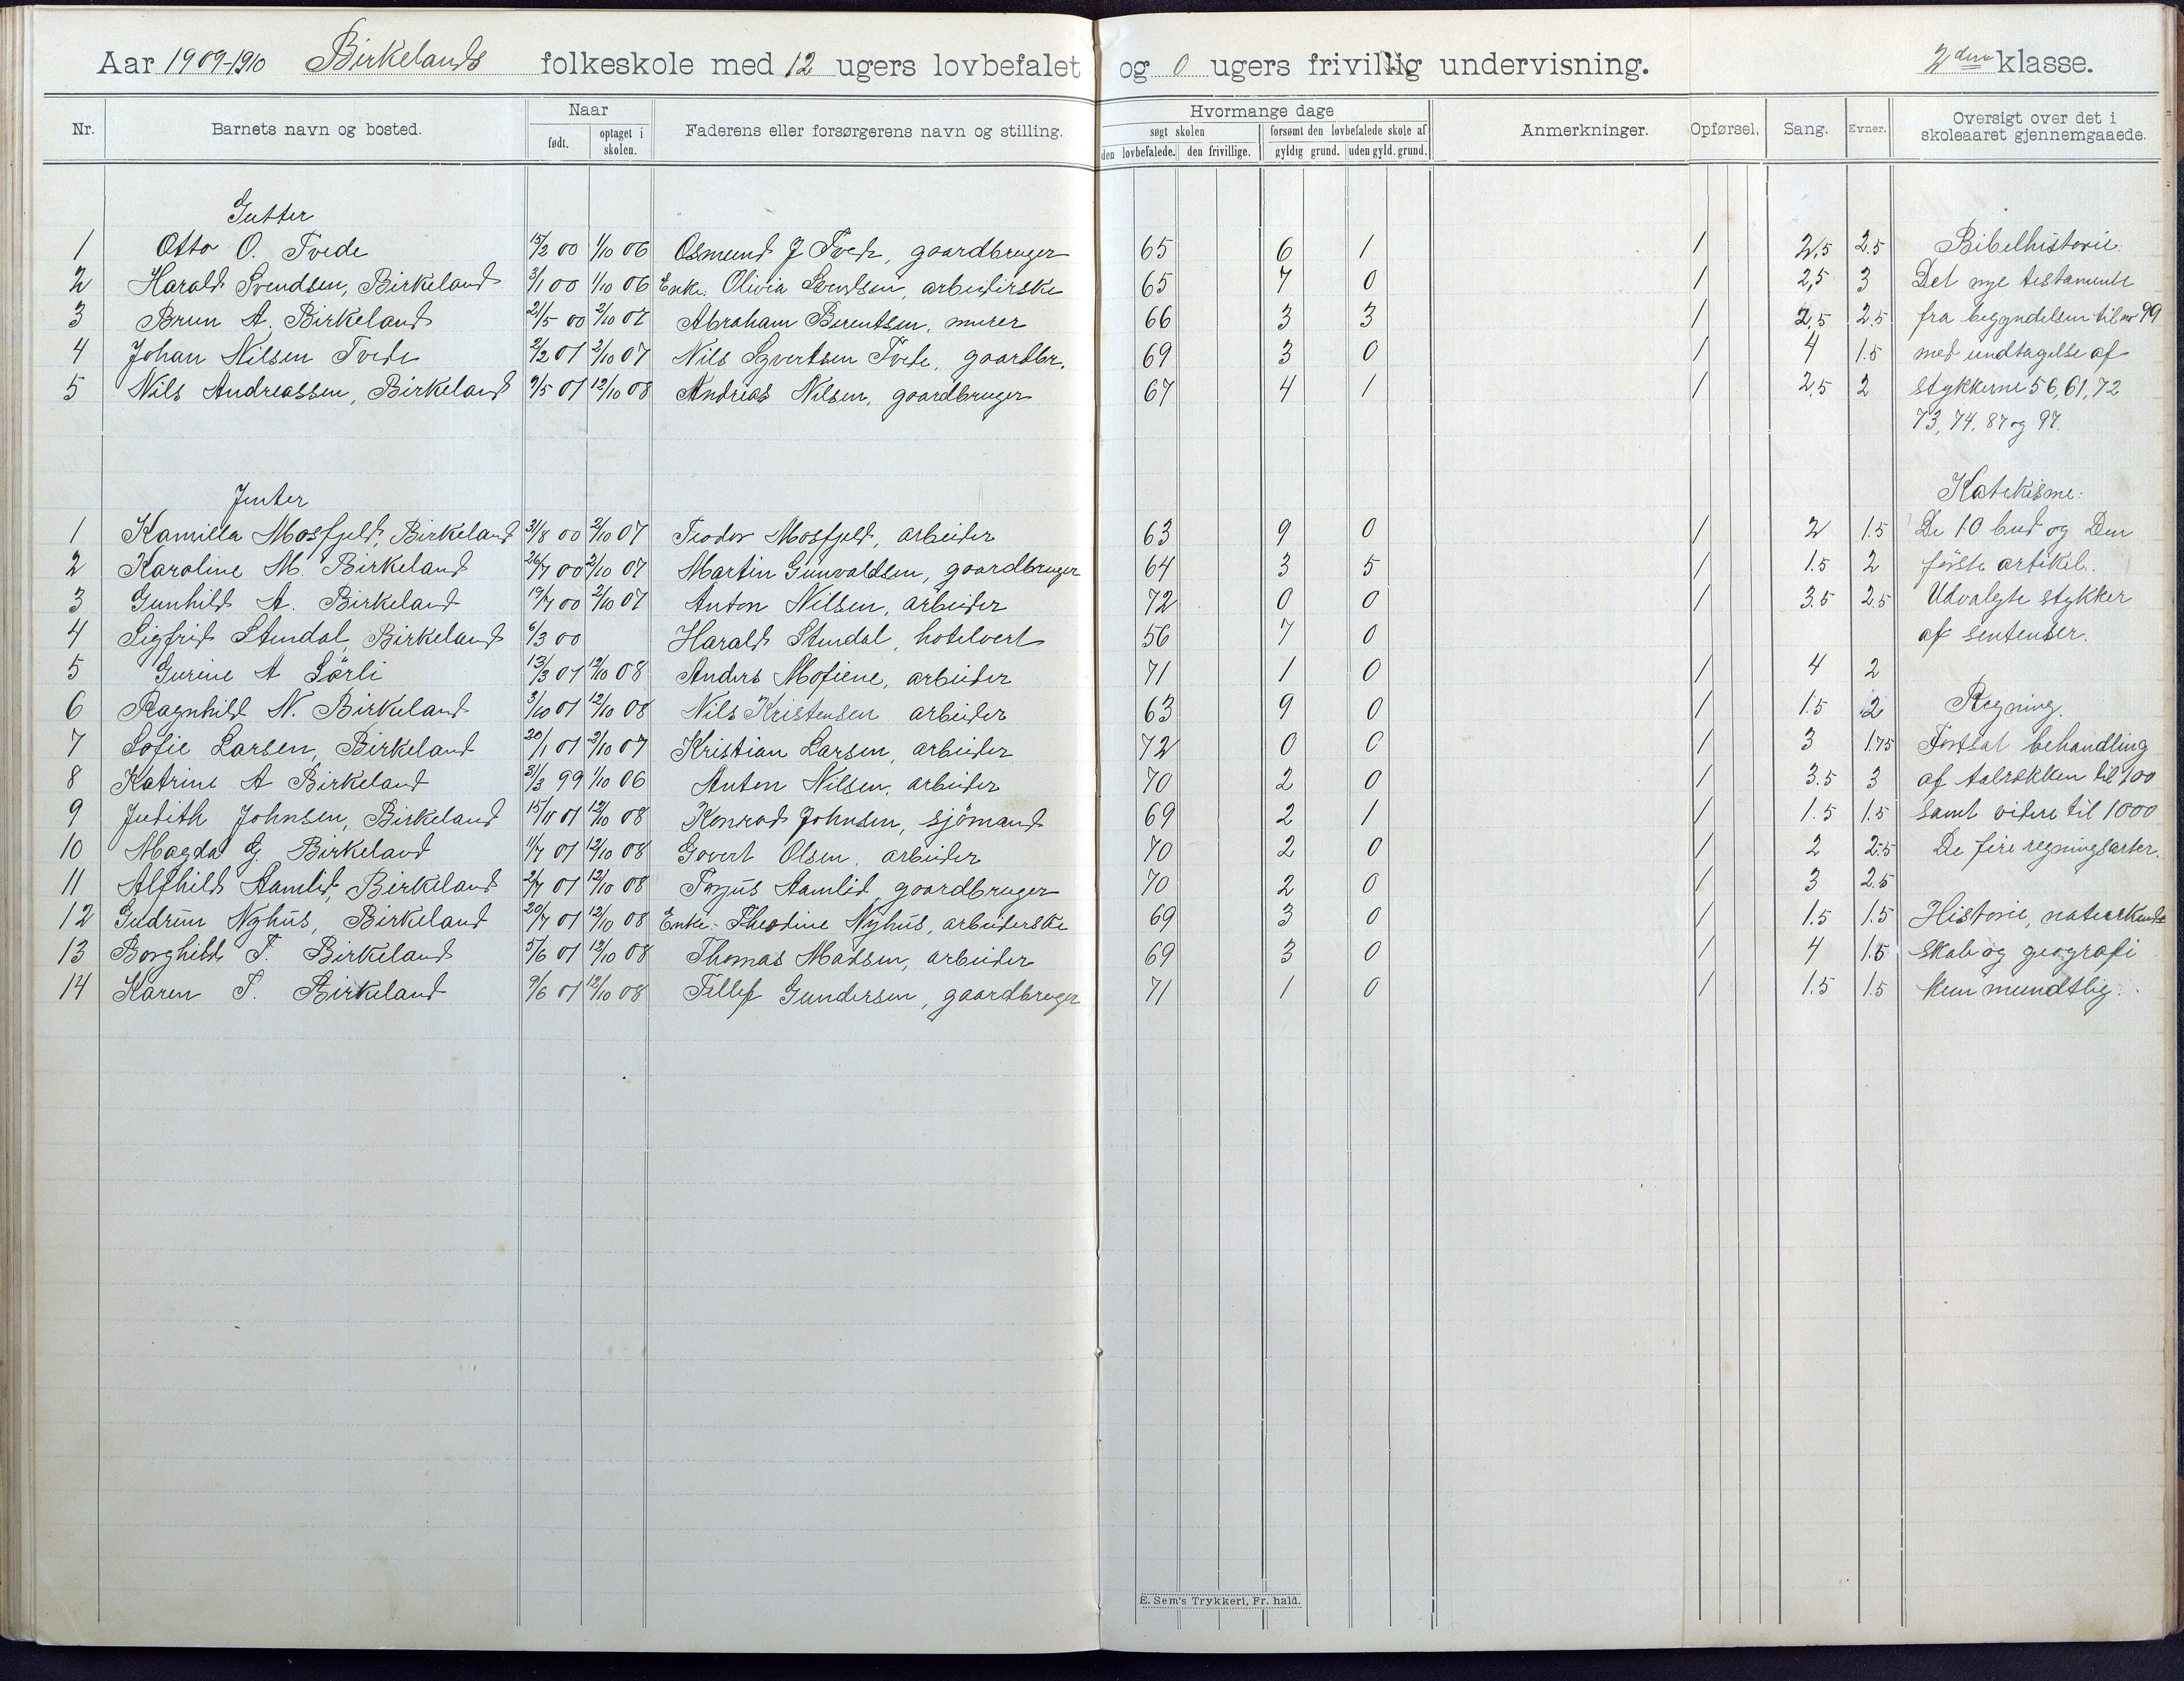 Aar 1909-1910 Birkelands folkeskole med 12 ugers lovbefalet og 0 ugers frivillig undervisning. 2den klasse.
Nr. Barnets navn og bosted. Naar født. optaget i skolen. Faderens eller forsørgerens navn og stilling. Hvormange dage søgt skolen den lovbefalede. den frivillige. forsømt den lovbefalede skole af gyldig grund. uden gyld. grund. Anmerkninger. Opførsel. Sang. Evner. Oversigt over det i skoleaaret gjennemgaaede.
Gutter
1 Otto O. Tvede 15/2 00 1/10 06 Osmund J Tvede, gaardbruger 65 6 1 1 2,5 2.5 Bibelhistorie.
2 Harald Svendsen, Birkeland 3/1 00 1/10 06 Enke. Olivia Svendsen, arbeiderske 65 7 0 1 2,5 3 Det nye testamente
3 Brun A. Birkeland 21/5 00 2/10 07 Abraham Berentsen, murer 66 3 3 1 2,5 2.5 fra begyndelsen til nr 99
4 Johan Nilsen Tvede 2/2 01 2/10 07 Nils Syvertsen Tvede, gaardbr. 69 3 0 1 4 1.5 med undtagelse af
5 Nils Andreassen, Birkeland 9/5 01 12/10 08 Andreas Nilsen, gaardbruger 67 4 1 1 2,5 2 stykkerne 56, 61, 72
73, 74, 87 og 97.
Jenter
Katekisme:
1 Kamilla Mosfjeld, Birkeland 31/8 00 2/10 07 Teodor Mosfjeld, arbeider 63 9 0 1 2 1.5 De 10 bud og Den
2 Karoline M. Birkeland 26/7 00 2/10 07 Martin Gunvaldsen, gaardbruger 64 3 5 1 1.5 2 første artikel.
3 Gunhild A. Birkeland 19/7 00 2/10 07 Anton Nilsen, arbeider 72 0 0 1 3.5 2.5 Udvalgte stykker
4 Sigfrid Stendal, Birkeland 6/3 00 Harald Stendal, hotelvert 56 7 0 af sentenser.
5 Gurine A Sørli 13/3 01 12/10 08 Anders Mofiene, arbeider 71 1 0 1 4 2
6 Ragnhild N. Birkeland 3/10 01 12/10 08 Nils Kristensen arbeider 63 9 0 1 1.5 2 Regning.
7 Sofie Larsen, Birkeland 20/1 01 2/10 07 Kristian Larsen, arbeider 72 0 0 1 3 1.75 Fortsat behandling
8 Katrine A Birkeland 31/3 99 1/10 06 Anton Nilsen, arbeider 70 2 0 1 3.5 3 af talrækken til 100
9 Judith Johnsen, Birkeland 15/11 01 12/10 08 Konrad Johnsen, sjömand 69 2 1 1 1.5 1.5 samt videre til 1000
10 Magda G. Birkeland 11/7 01 12/10 08 Govert Olsen, arbeider 70 2 0 1 2 2.5 De fire regningsarter.
11 Alfhild Aamlid, Birkeland 2/7 01 12/10 08 Torjus Aamlid, gaardbruger 70 2 0 1 3 2.5
12 Gudrun Nyhus, Birkeland 20/7 01 12/10 08 Enke. Theodine Nyhus, arbeiderske 69 3 0 1 1.5 1.5 Historie, naturkend-
13 Borghild T. Birkeland 5/6 01 12/10 08 Thomas Madsen, arbeider 69 3 0 1 4 1.5 skab og geografi
14 Karen T. Birkeland 9/6 01 12/10 08 Tellef Gundersen, gaardbruger 71 1 0 1 1.5 1.5 kun mundtlig.
E. Sem's Trykkeri, Fr. hald.